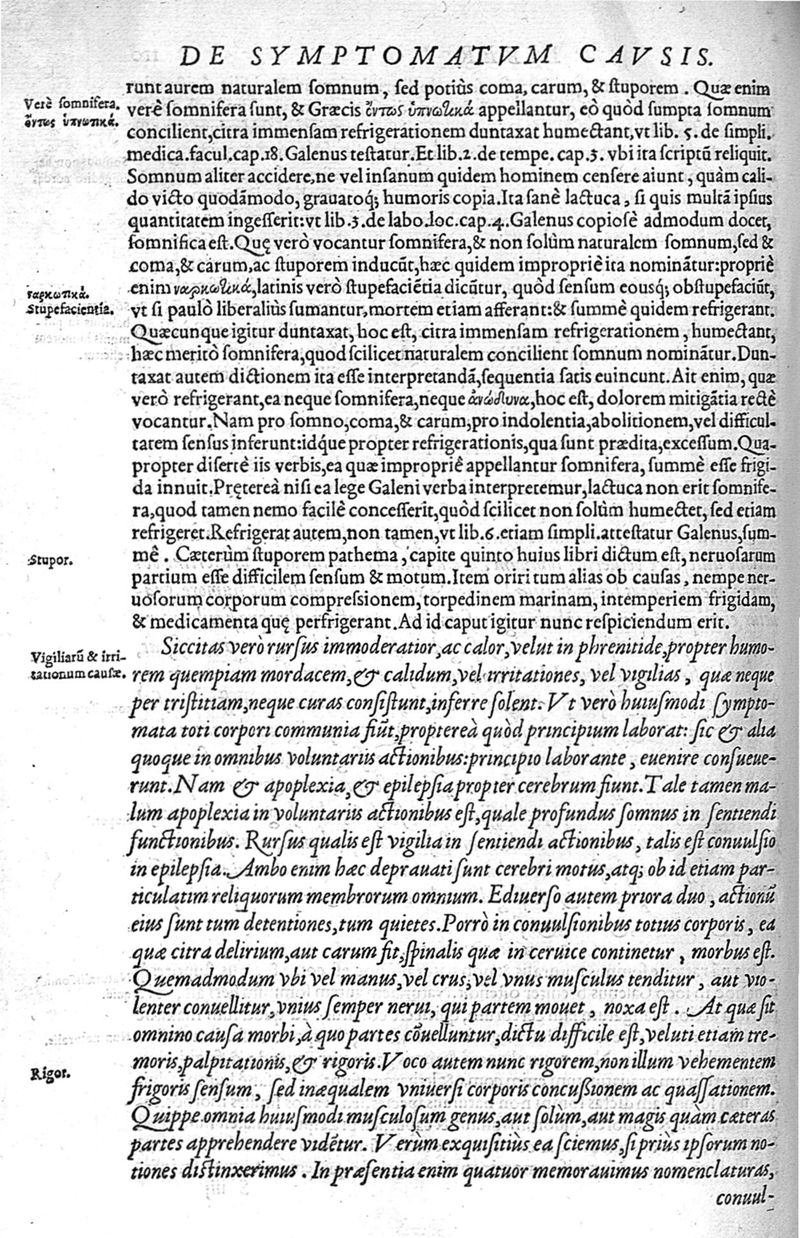 DE SYMPTOMATVM CAVSIS.
runt aurem naturalem somnum, sed potiùs coma, carum, & stuporem. Quæ enim
Verè somnifera.
ὄντως ὑπνωτικά.
verè somnifera sunt, & Græcis ὄντως ὑπνωτικά appellantur, eò quòd sumpta somnum
concilient, citra immensam refrigerationem duntaxat humectant, vt lib. 5. de simpli.
medica. facul. cap. 18. Galenus testatur. Et lib. 2. de tempe. cap. 3. vbi ita scriptũ reliquit.
Somnum aliter accidere, ne vel insanum quidem hominem censere aiunt, quàm cali-
do victo quodãmodo, grauatoq; humoris copia. Ita sanè lactuca, si quis multã ipsius
quantitatem ingesserit: vt lib. 3. de labo. loc. cap. 4. Galenus copiosè admodum docet,
somnifica est. Quę verò vocantur somnifera, & non solùm naturalem somnum, sed &
coma, & carum, ac stuporem inducũt, hæc quidem impropriè ita nominãtur: propriè
ναρκωτικά.
Stupefacientia.
enim ναρκωτικά, latinis verò stupefaciẽtia dicũtur, quòd sensum eousq; obstupefaciũt,
vt si paulò liberaliùs sumantur, mortem etiam afferant: & summè quidem refrigerant.
Quæcunque igitur duntaxat, hoc est, citra immensam refrigerationem, humectant,
hæc meritò somnifera, quod scilicet naturalem concilient somnum nominãtur. Dun-
taxat autem dictionem ita esse interpretandã, sequentia satis euincunt. Ait enim, quæ
verò refrigerant, ea neque somnifera, neque ἀνώδυνα, hoc est, dolorem mitigãtia rectè
vocantur. Nam pro somno, coma, & carum, pro indolentia, abolitionem, vel difficul-
tatem sensus inferunt: idq́ue propter refrigerationis, qua sunt prædita, excessum. Qua-
propter disertè iis verbis, ea quæ impropriè appellantur somnifera, summè esse frigi-
da innuit. Prętereà nisi ea lege Galeni verba interpretemur, lactuca non erit somnife-
ra, quod tamen nemo facilè concesserit, quòd scilicet non solùm humectet, sed etiam
refrigeret. Refrigerat autem, non tamen, vt lib. 6. etiam simpli. attestatur Galenus, sum-
Stupor.
mè. Cæterùm stuporem pathema, capite quinto huius libri dictum est, neruosarum
partium esse difficilem sensum & motum. Item oriri tum alias ob causas, nempe ner-
uosorum corporum compressionem, torpedinem marinam, intemperiem frigidam,
& medicamenta quę perfrigerant. Ad id caput igitur nunc respiciendum erit.
Vigiliarũ & irri-
tationum causæ.
Siccitas verò rursus immoderatior, ac calor, velut in phrenitide, propter humo-
rem quempiam mordacem, & calidum, vel irritationes, vel vigilias, quæ neque
per tristitiam, neque curas consistunt, inferre solent. Vt verò huiusmodi sympto-
mata toti corpori communia fiũt, proptereà quòd principium laborat: sic & alia
quoque in omnibus voluntariis actionibus: principio laborante, euenire consueue-
runt. Nam & apoplexia, & epilepsia propter cerebrum fiunt. Tale tamen ma-
lum apoplexia in voluntariis actionibus est, quale profundus somnus in sentiendi
functionibus. Rursus qualis est vigilia in sentiendi actionibus, talis est conuulsio
in epilepsia. Ambo enim hæc deprauati sunt cerebri motus, atq; ob id etiam par-
ticulatim reliquorum membrorum omnium. Ediuerso autem priora duo, actionũ
eius sunt tum detentiones, tum quietes. Porrò in conuulsionibus totius corporis, ea
quæ citra delirium, aut carum fit, spinalis quæ in ceruice continetur, morbus est.
Quemadmodum vbi vel manus, vel crus, vel vnus musculus tenditur, aut vio-
lenter conuellitur, vnius semper nerui, qui partem mouet, noxa est. At quæ sit
omnino causa morbi, à quo partes cõuelluntur, dictu difficile est, veluti etiam tre-
Rigor.
moris, palpitationis, & rigoris. Voco autem nunc rigorem, non illum vehementem
frigoris sensum, sed inæqualem vniuersi corporis concussionem ac quassationem.
Quippe omnia huiusmodi musculosum genus, aut solùm, aut magis quàm cæteras
partes apprehendere vidẽtur. Verùm exquisitiùs ea sciemus, si priùs ipsorum no-
tiones distinxerimus. In præsentia enim quatuor memorauimus nomenclaturas,
conuul-